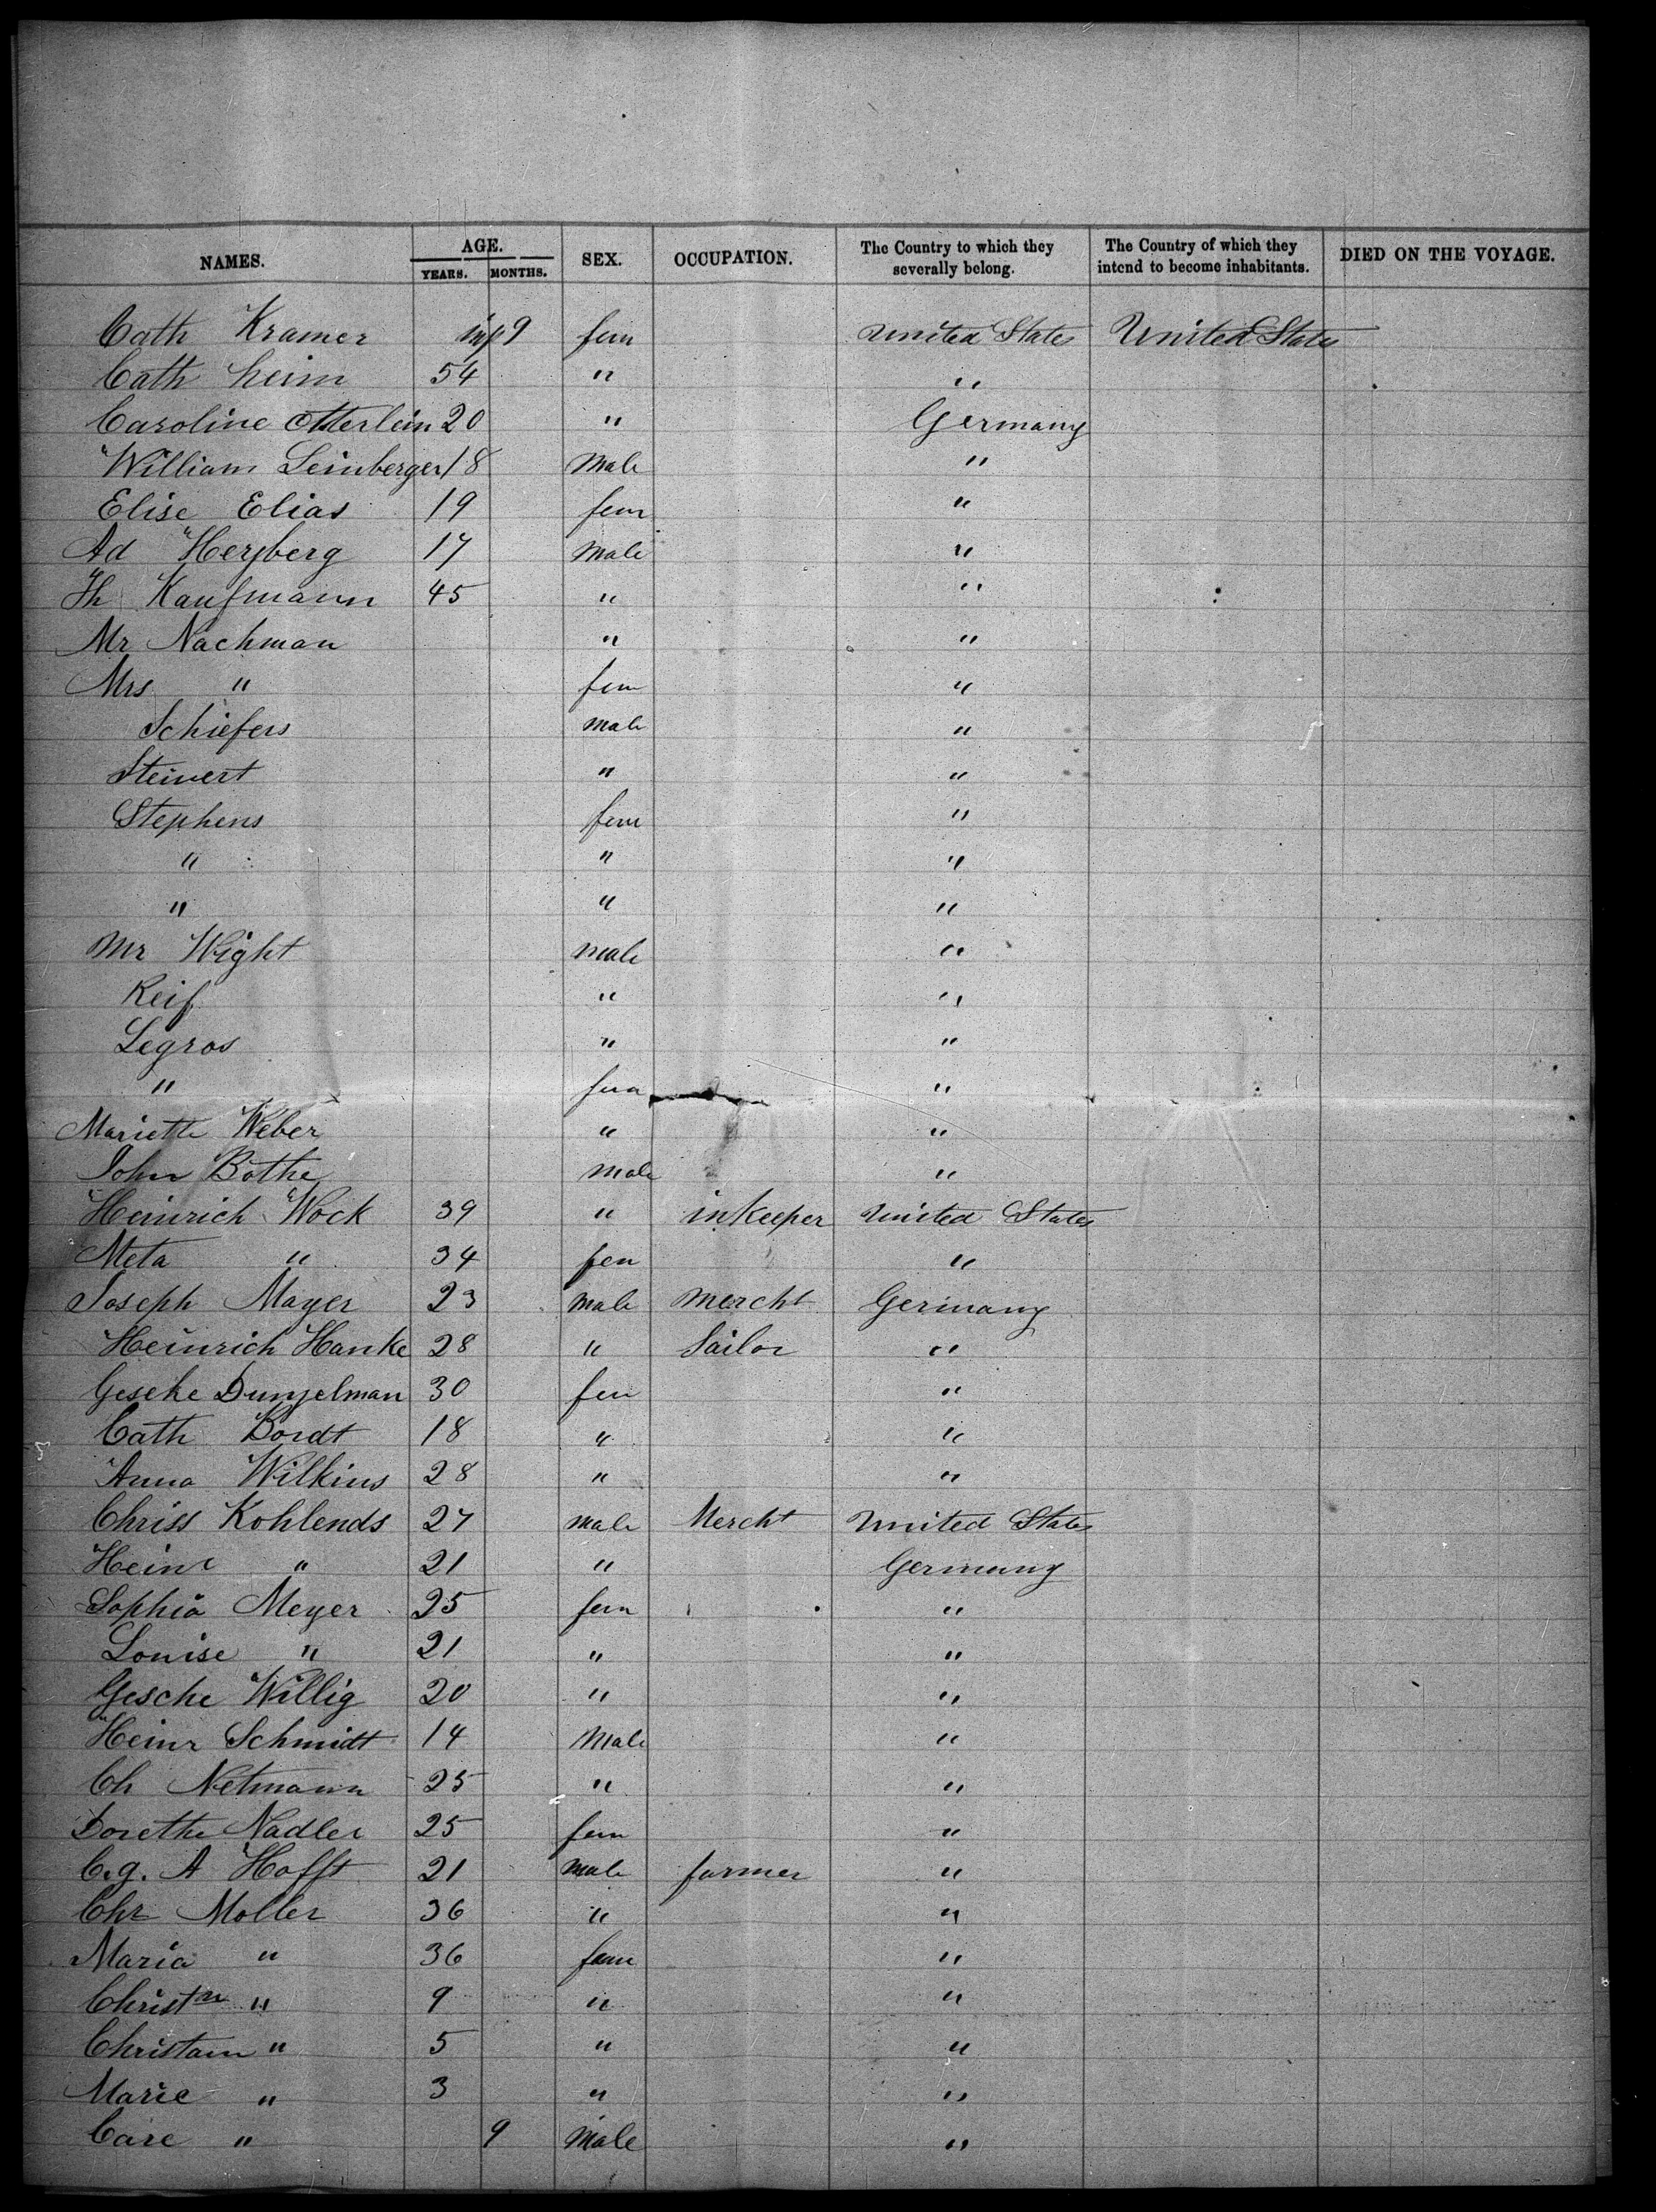 NAMES. AGE. YEARS. MONTHS. SEX. OCCUPATION. The Country to which they severally belong. The Country of which they intend to become inhabitants. DIED ON THE VOYAGE.
Cath Kramer inf 9 fem United States United States
Cath heim 54 " "
Caroline Otterlein 20 " Germany
William Leinberger 18 Male "
Elise Elias 19 fem "
Ad Herzberg 17 Male "
Th Kaufmann 45 " "
Mr Nachman " "
Mrs " fem "
Schiefers male "
Steinert " "
Stephens fem "
" " "
" " "
Mr Wight male "
Reif " "
Legros " "
" fem "
Mariette Weber " "
John Bothe Male "
Heinrich Wock 39 " inKeeper United States
Meta " 34 fem "
Joseph Mayer 23 male Mercht Germany
Heinrich Hanke 28 " Sailor "
Geseke Dunzelman 30 fem "
Cath Bordt 18 " "
Anna Wilkins 28 " "
Chriss Kohlends 27 male Mercht United States
Heinr " 21 " Germany
Sophia Meyer 25 fem "
Louise " 21 " "
Gesche Willig 20 " "
Heinr Schmidt 14 Male "
Ch Netmann 25 " "
Dorethe Nadler 25 fem "
C. g. A Hofft 21 male farmer "
Chr Moller 36 " "
Maria " 36 fem "
Christne " 9 " "
Christam " 5 " "
Marie " 3 " "
Care " 9 Male "